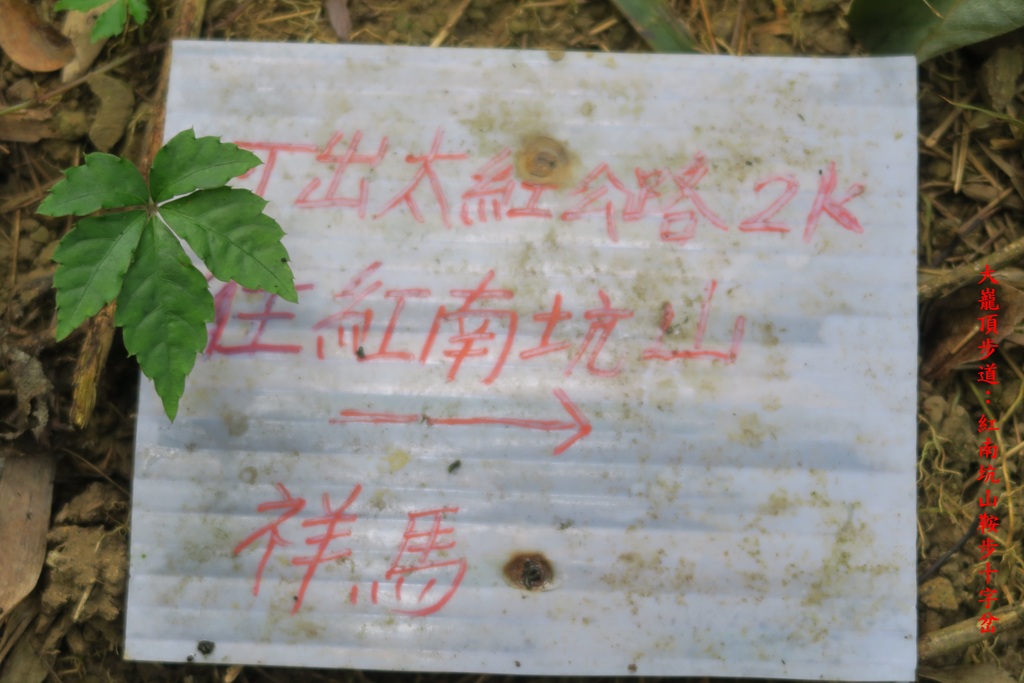 下出太紅公路2K
往紅南坑山
→
祥馬
大巃頂步道:紅南坑山鞍步十字岔